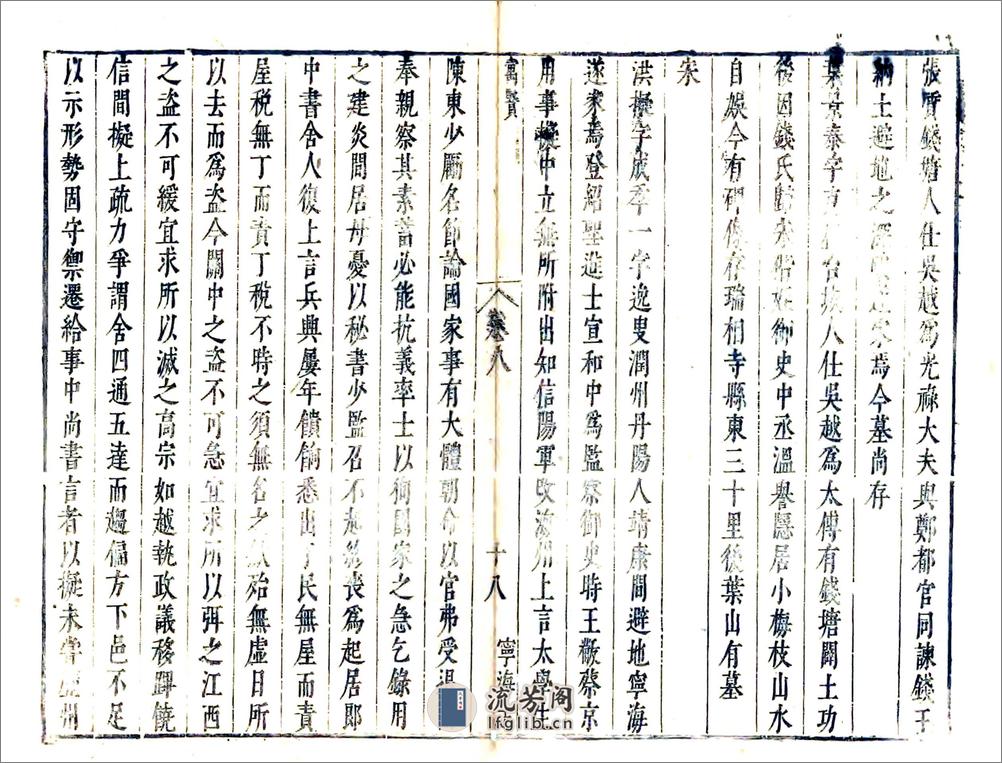 張質錢塘人仕吳越爲光祿大夫與鄭都官同諫錢王
納土避地之深 家焉今墓尚存
葉京泰字 人仕吳越爲太傅有錢塘闢土功
後因錢氏歸宋 御史中丞溫譽隱居小梅枝山水
自娛今有碑 存瑞相寺縣東三十里後葉山有墓
宋
洪擬字成季一字逸叟潤州丹陽人靖康間避地寧海
遂家焉登紹聖進士宣和中爲監察御史時王黼蔡京
用事擬中立無所附出知信陽軍改海州上言太學生
寓賢
卷八
十八
寧海
陳東少勵名節論國家事有大體朝命以官弗受退
奉親察其素蓄必能抗義率士以徇國家之急乞錄用
之建炎間居母憂以秘書少監召不起終喪爲起居郎
中書舍人復上言兵興屢年饋餉悉出于民無屋而責
屋稅無丁而責丁稅不時之須無名之 殆無虛日所
以去而爲盜今關中之盜不可急宜求所以弭之江西
之盜不可緩宜求所以滅之高宗如越執政議移蹕饒
信間擬上疏力爭謂舍四通五達而趨偏方下邑不足
以示形勢固守禦遷給事中尚書言者以擬未嘗 州
流芳阁
lfglib.cn